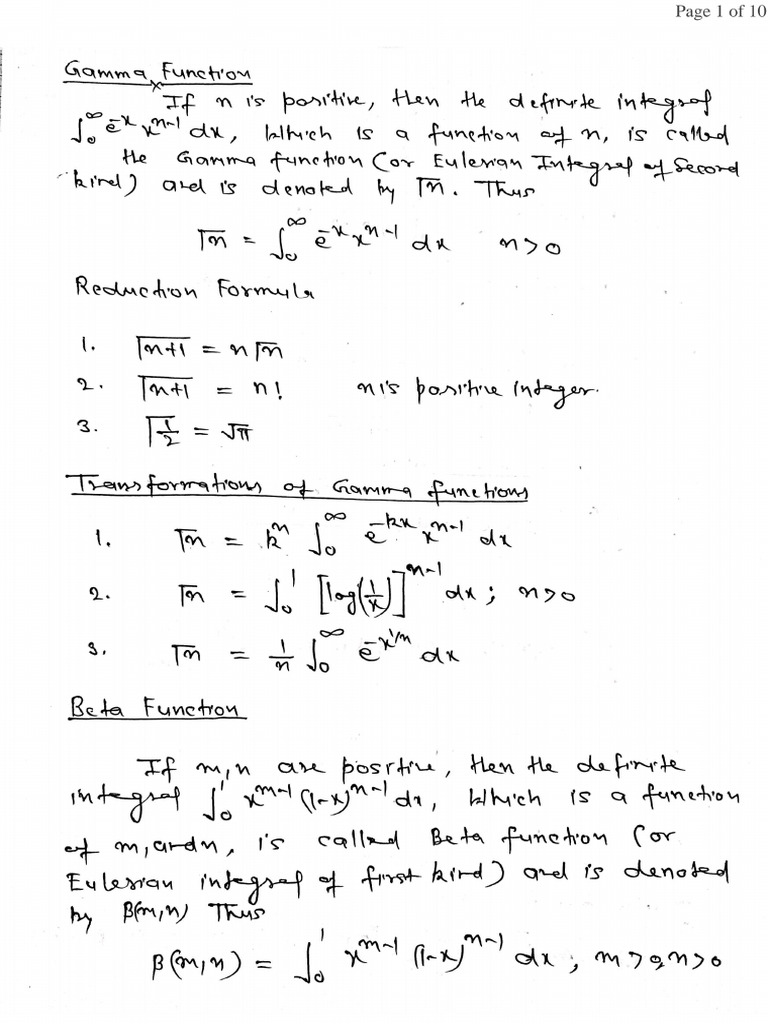 Page 1 of 10
Gamma Function
If n is positive, then the definite integral
∫₀^∞ e^-x x^n-1 dx, which is a function of n, is called
the Gamma function (or Eulerian Integral of Second
kind) and is denoted by Γn. Thus
Γn = ∫₀^∞ e^-x x^n-1 dx n>0
Reduction Formula
1. Γn+1 = nΓn
2. Γn+1 = n! n is positive integer.
3. Γ1/2 = √π
Transformations of Gamma functions
1. Γn = k^n ∫₀^∞ e^-kx x^n-1 dx
2. Γn = ∫₀^1 [log(1/x)]^n-1 dx; n>0
3. Γn = 1/n ∫₀^∞ e^-x^1/n dx
Beta Function
If m,n are positive, then the definite
integral ∫₀^1 x^m-1 (1-x)^n-1 dx, which is a function
of m, and n, is called Beta function (or
Eulerian integral of first kind) and is denoted
by β(m,n) Thus
β(m,n) = ∫₀^1 x^m-1 (1-x)^n-1 dx; m>0,n>0